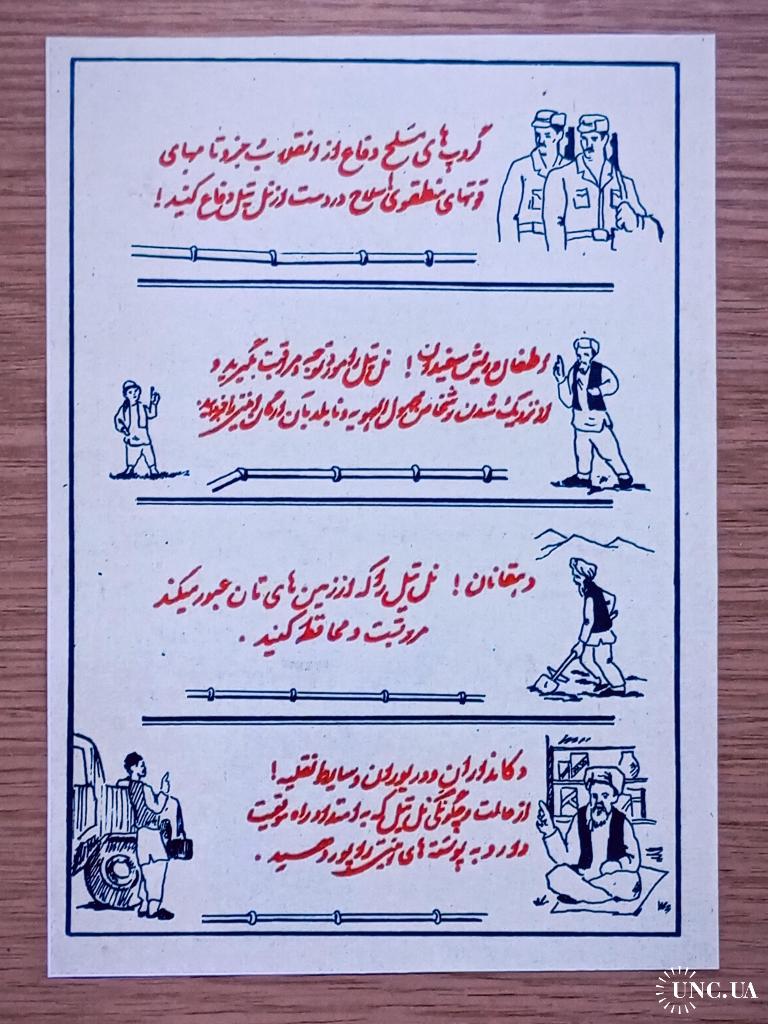 گروپ های مسلح دفاع از انقلاب جزوتامهای
قوتهای منطقوی! سلاح در دست از نل تیل دفاع کنید!
اطفال و ریش سفیدان! نل تیل را مورد توجه و مراقبت بگیرید و
از نزدیک شدن اشخاص مجهول الهویه و نابلد بآن ارگان امنیتی را
دهقانان! نل تیل را که از زمین های تان عبور میکند
مراقبت و محافظه کنید.
دکانداران و دریوران وسایط نقلیه!
از حالت و چگونگی نل تیل که به امتداد راه موقعیت
دارد به پوسته های امنیتی راپور دهید.
UNC.UA